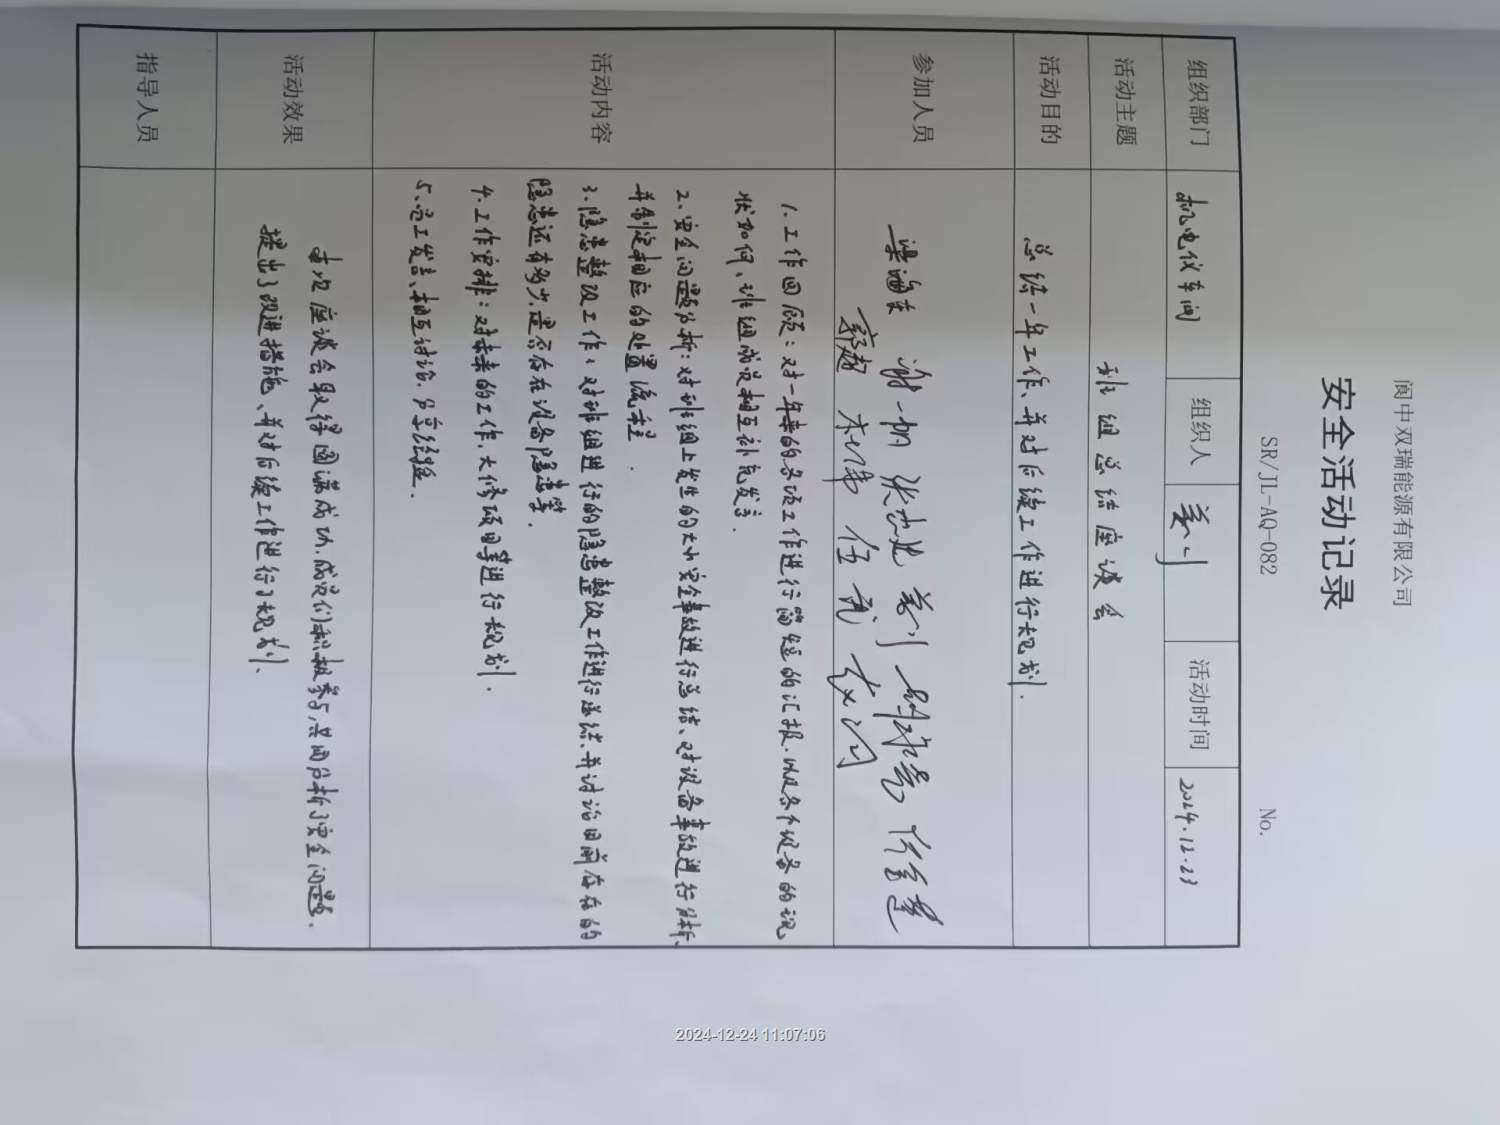 阆中双瑞能源有限公司
安全活动记录
SR/JL-AQ-082 No.
组织部门 机电仪车间 组织人 活动时间 2024.12.23
活动主题 班组总结座谈会
活动目的 总结一年工作、并对后续工作进行规划.
参加人员 谢一明
郭超 伍
活动内容 1.工作回顾：对一年来的各项工作进行简短的汇报.以及各个设备的现
状如何、班组成员相互补充发言.
2、安全问题分析：对班组上发生的大小安全事故进行总结、对设备事故进行分析、
并制定相应的处置流程.
3.隐患整改工作：对班组进行的隐患整改工作进行总结.并讨论目前存在的
隐患还有多少.是否存在设备隐患等.
4.工作安排：对未来的工作.大修项目等进行规划.
5、员工发言、相互讨论.分享经验.
活动效果 本次座谈会取得圆满成功.成员们积极参与.共同分析了安全问题.
提出了改进措施、并对后续工作进行了规划.
指导人员
2024-12-24 11:07:06